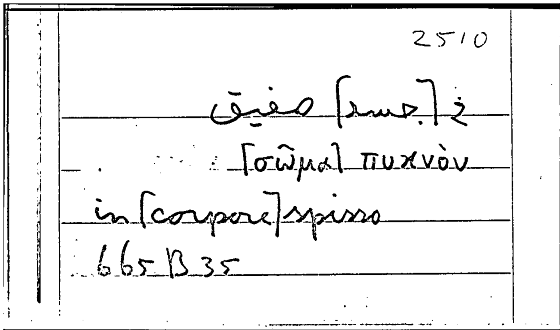 2510
في [جسد] صفيق
[σῶμα] πυκνὸν
in [corpore] spisso
665 B 35